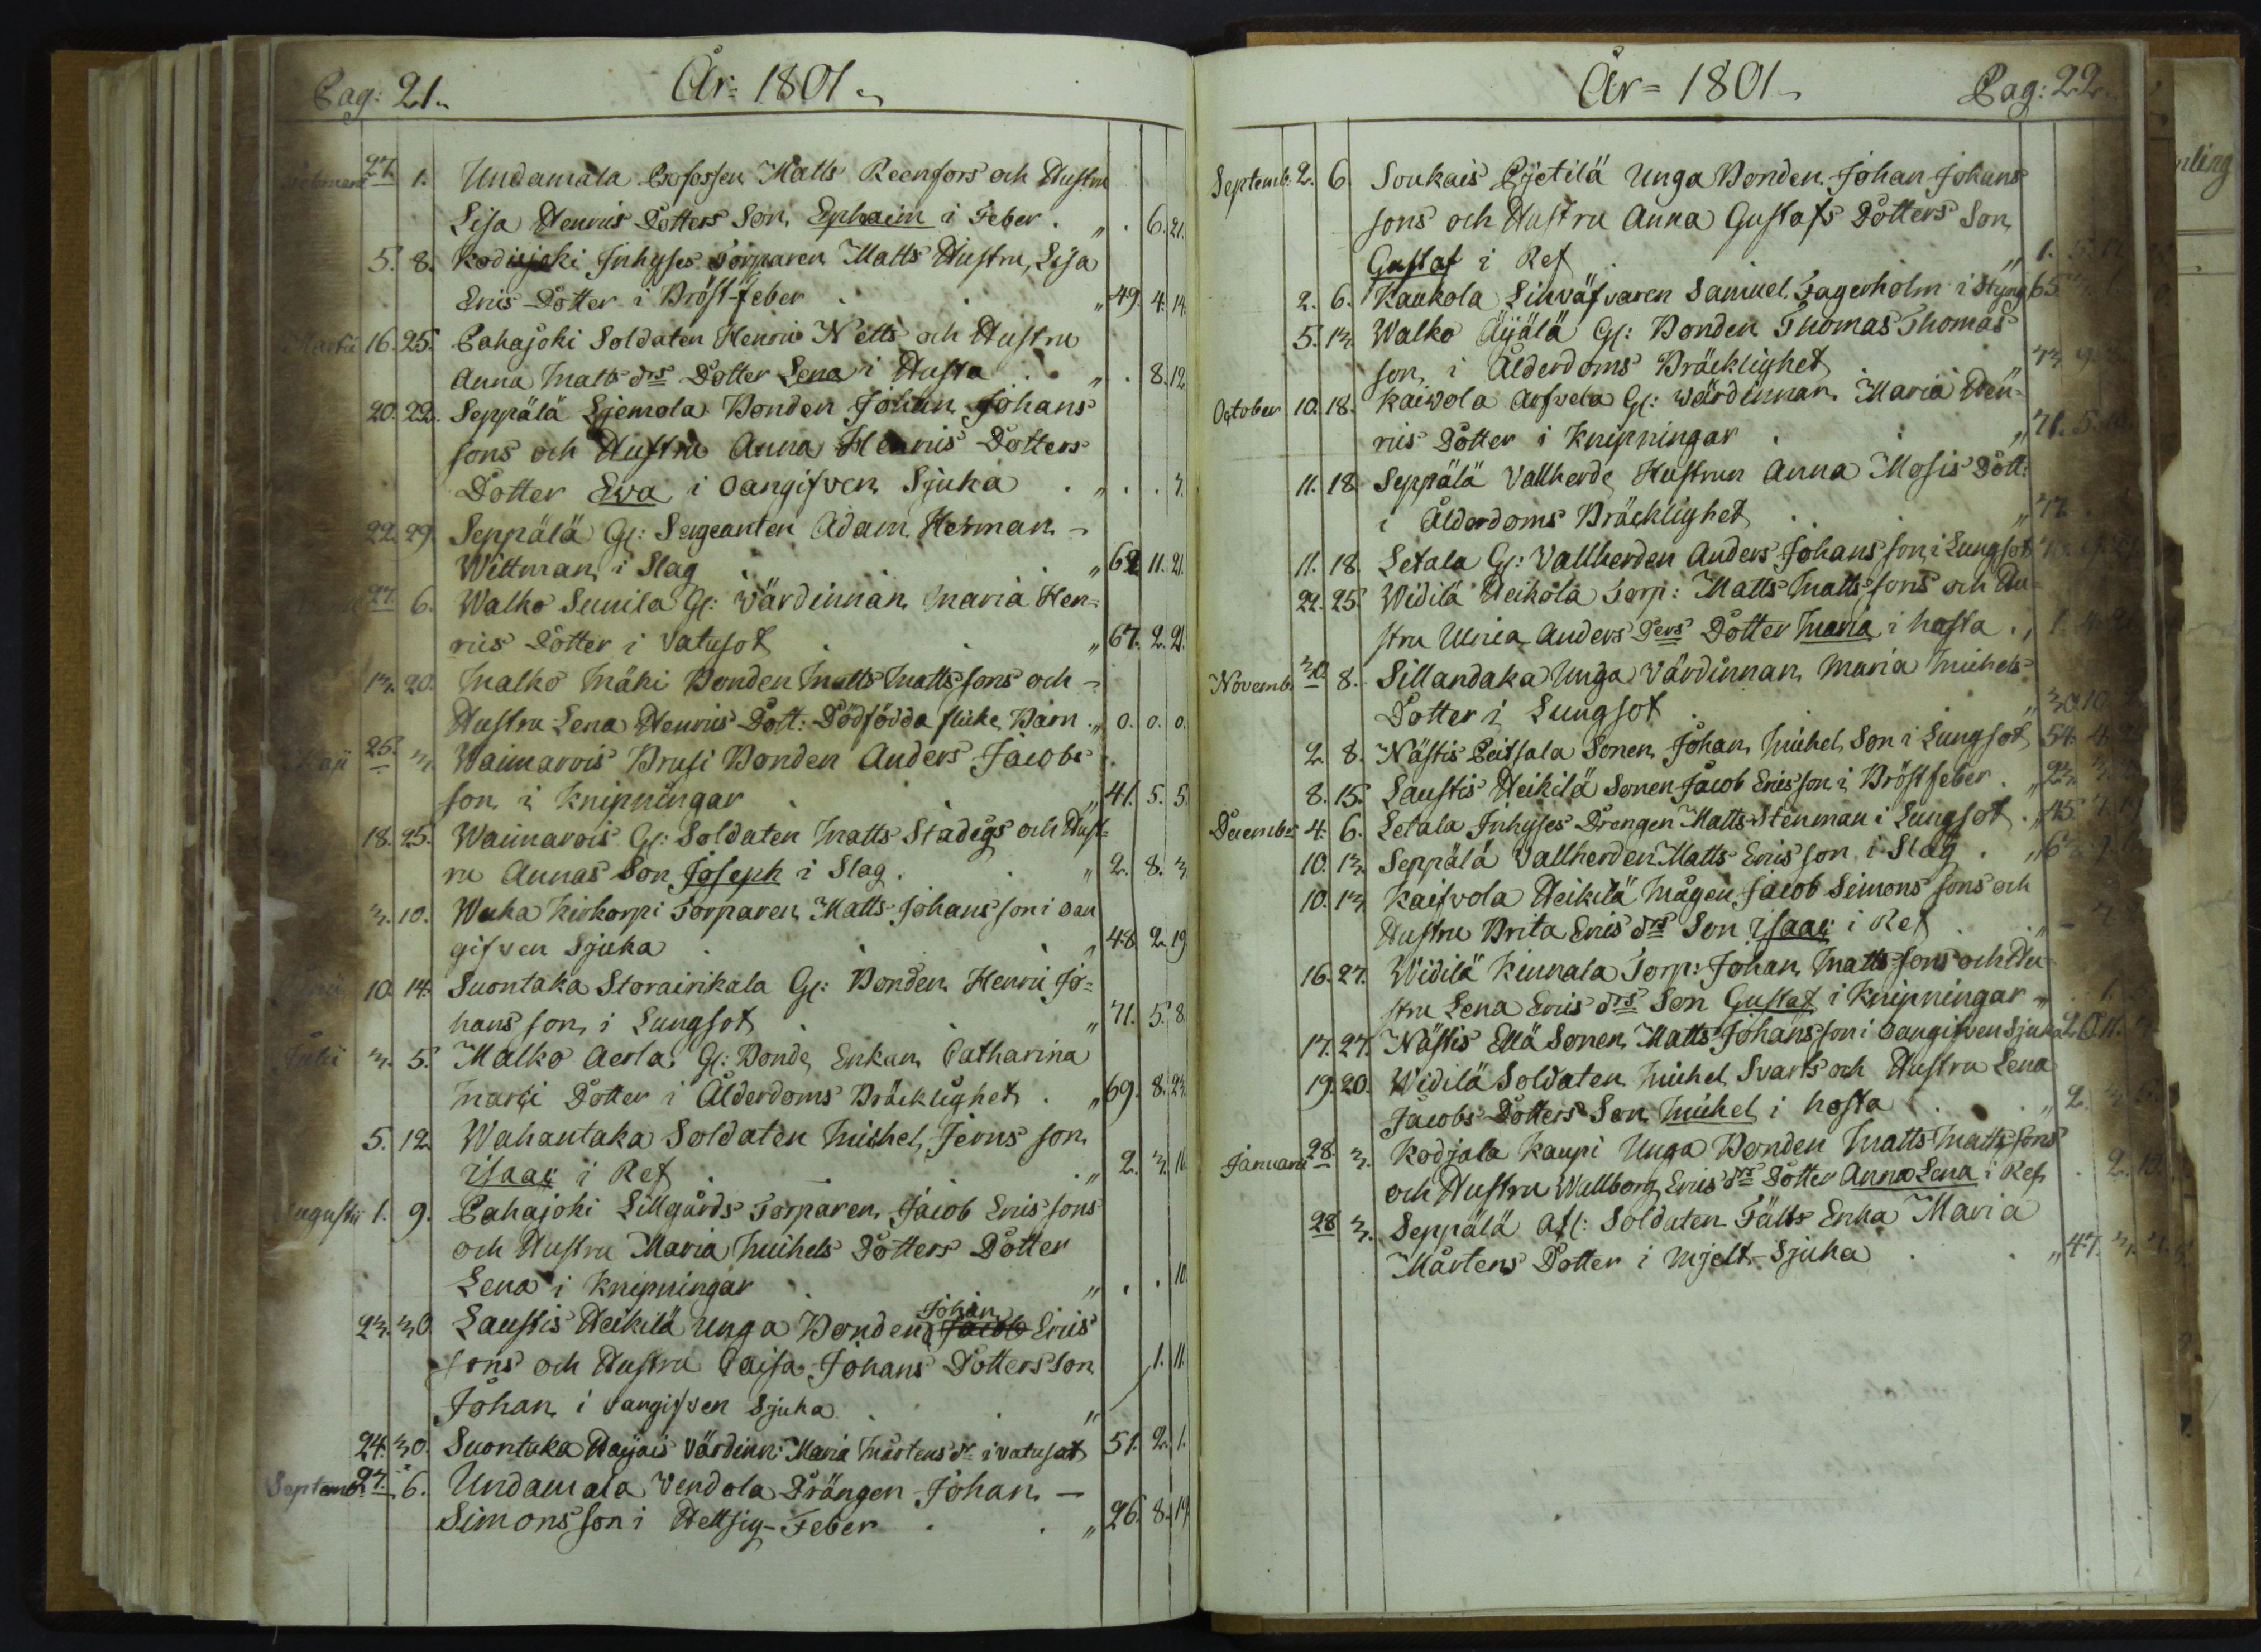 Pag: 21.
År= 1801.
27. 1. Undamala Profossen Matts Reenfors och Hustru
Lisa Henrics Dotters Son, Ephraim i Feber. „ . 6. 21.
5. 8. Kodisjoki Inhyses Torparen Matts Hustru, Lisa
Erics Dotter i Bröst-feber „ 49. 4. 14.
Martii 16. 25. Pahajoki Soldaten Henric Netts och Hustru
Anna Matts drs Dotter Lena i Hosta „ . 8. 12.
20. 22. Seppälä Sjemola Bonden Johan Johans
sons och Hustru Anna Henrics Dotters
Dotter Ewa i Oangifven Sjuka „ . . 7.
22. 29. Seppälä Gl: Sergeanten Adam Herman
Wittman i Slag „ 62. 11. 21.
27. 6. Walko Sunila Gl: Wärdinnan Maria Hen=
rics Dotter i Vatusot „ 67. 2. 21.
13. 20. Malko Mäki Bonden Matts Matts sons och
Hustru Lena Henrics Dott: Dödfödda flicke Barn „ 0. 0. 0.
Maji 25. 3. Waimarois Brusi Bonden Anders Jacobs
son i Knipningar „ 41. 5. 5.
18. 25. Waimarois Gl: Soldaten Matts Stadigs och Hust=
ru Annas Son Joseph i Slag „ 2. 8. 3.
3. 10. Wuka Kirkorpi Torparen Matts Johans son i Oan
gifven Sjuka „ 48. 2. 19.
10. 14. Suontaka Storairikala Gl: Bonden Henric Jo=
hans son i Lungsot „ 71. 5. 8.
Julii 3. 5. Malko Aerla Gl: Bonde Enkan Catharina
Marci Dotter i Ålderdoms Bräcklighet „ 69. 8. 23.
5. 12. Wahantaka Soldaten Michel Jerns son
Isaac i Ref „ 2. 3. 16.
Augustii 1. 9. Pahajoki Lillgårds Torparen Jacob Erics sons
och Hustru Maria Michels Dotters Dotter
Lena i Knipningar „ . . 10.
23. 30. Laustis Heikilä Unga Bonden Jacob Johan Erics
sons och Hustru Caisa Johans Dotters son
Johan i Oangifven Sjuka „ 1. 11.
24. 30. Suontaka Hayais Värdinn: Maria Mårtens dr i Vatusot 51. 2. 1.
Septemb. 27. 6. Undamala Vendola Drängen Johan
Simons son i Hettsig-Feber „ 26. 8. 19.
År= 1801
Pag: 22.
Septemb: 2. 6. Soukais Pjetilä Unga Bonden Johan Johans
sons och Hustru Anna Gustafs Dotters Son
Gustaf i Ref „ 1. 5.
2. 6. Kaukola Linväfvaren Samuel Fagerholm i Styng 65.
5. 13. Walko Äijälä Gl: Bonden Thomas Thomas
son i Ålderdoms Bräcklighet 73. 9.
October 10. 18. Kaivola Arfvela Gl: Wärdinnan Maria Hen=
rics Dotter i Knipningar „ 71. 5.
11. 18. Seppälä Vallherde Hustrun Anna Mosis Dott:
i Ålderdoms Bräcklighet „ 77.
11. 18. Letala Gl: Vallherden Anders Johans son i Lungsot
22. 25. Widilä Heikola Torp: Matts Matts sons och Hu=
stru Ulrica Anders Ders Dotter Maria i hosta „ 1.
Novemb. 30. 8. Sillandaka Unga Värdinnan Maria Michels
Dotter i Lungsot „ 30. 10.
2. 8. Nästis Peitsala Sonen Johan Michel Son i Lungsot 54. 4.
8. 15. Laustis Heikilä Sonen Jacob Ericsson i Bröstfeber „ 23.
December 4. 6. Letala Inhyses Drengen Matts Stenman i Lungsot „ 45. 7.
10. 13. Seppälä Vallherden Matts Erics son i Slag
10. 13. Kaifvola Heikilä Mågen Jacob Simons sons och
Hustru Brita Erics drs Son Isaac i Ref
16. 27. Widilä Kinnala Torp: Johan Matts sons och Hu=
stru Lena Erics drs Son Gustaf i Knipningar
17. 27. Nästis Ellä Sonen Matts Johans son i Oangifven Sjuka 20. 11.
19. 20. Widilä Soldaten Michel Svarts och Hustru Lena
Jacobs Dotters Son Michel i hosta „ 2.
Januarii 28. 3. Kodjala Kaupi Unga Bonden Matts Matts sons
och Hustru Wallborg Erics drs Dotter Anna Lena i Ref . 2. 19.
28. 3. Seppälä Afl: Soldaten Fälts Enka Maria
Mårtens Dotter i Mjelt-Sjuka „ 47. 3.
nling